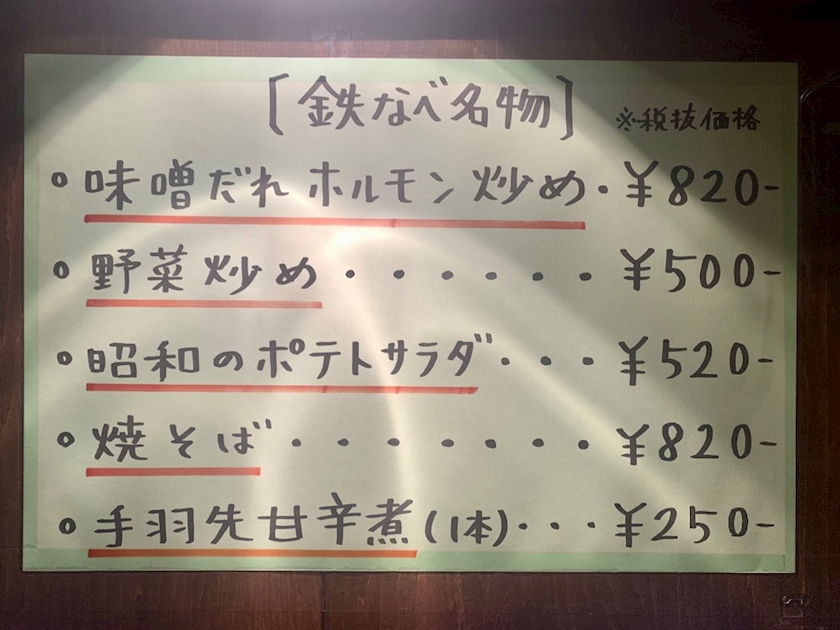 [鉄なべ名物] ※税抜価格
○味噌だれホルモン炒め・¥820-
○野菜炒め・・・・・・¥500-
○昭和のポテトサラダ・・・¥520-
○焼そば・・・・・・・¥820-
○手羽先甘辛煮(1本)・・・¥250-